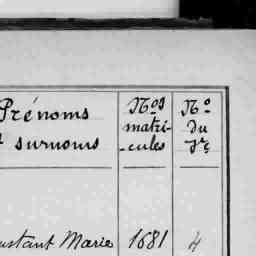 Prénoms
surnoms
Nos
matri-
-cules
No
du
ustant Marie 1681 4